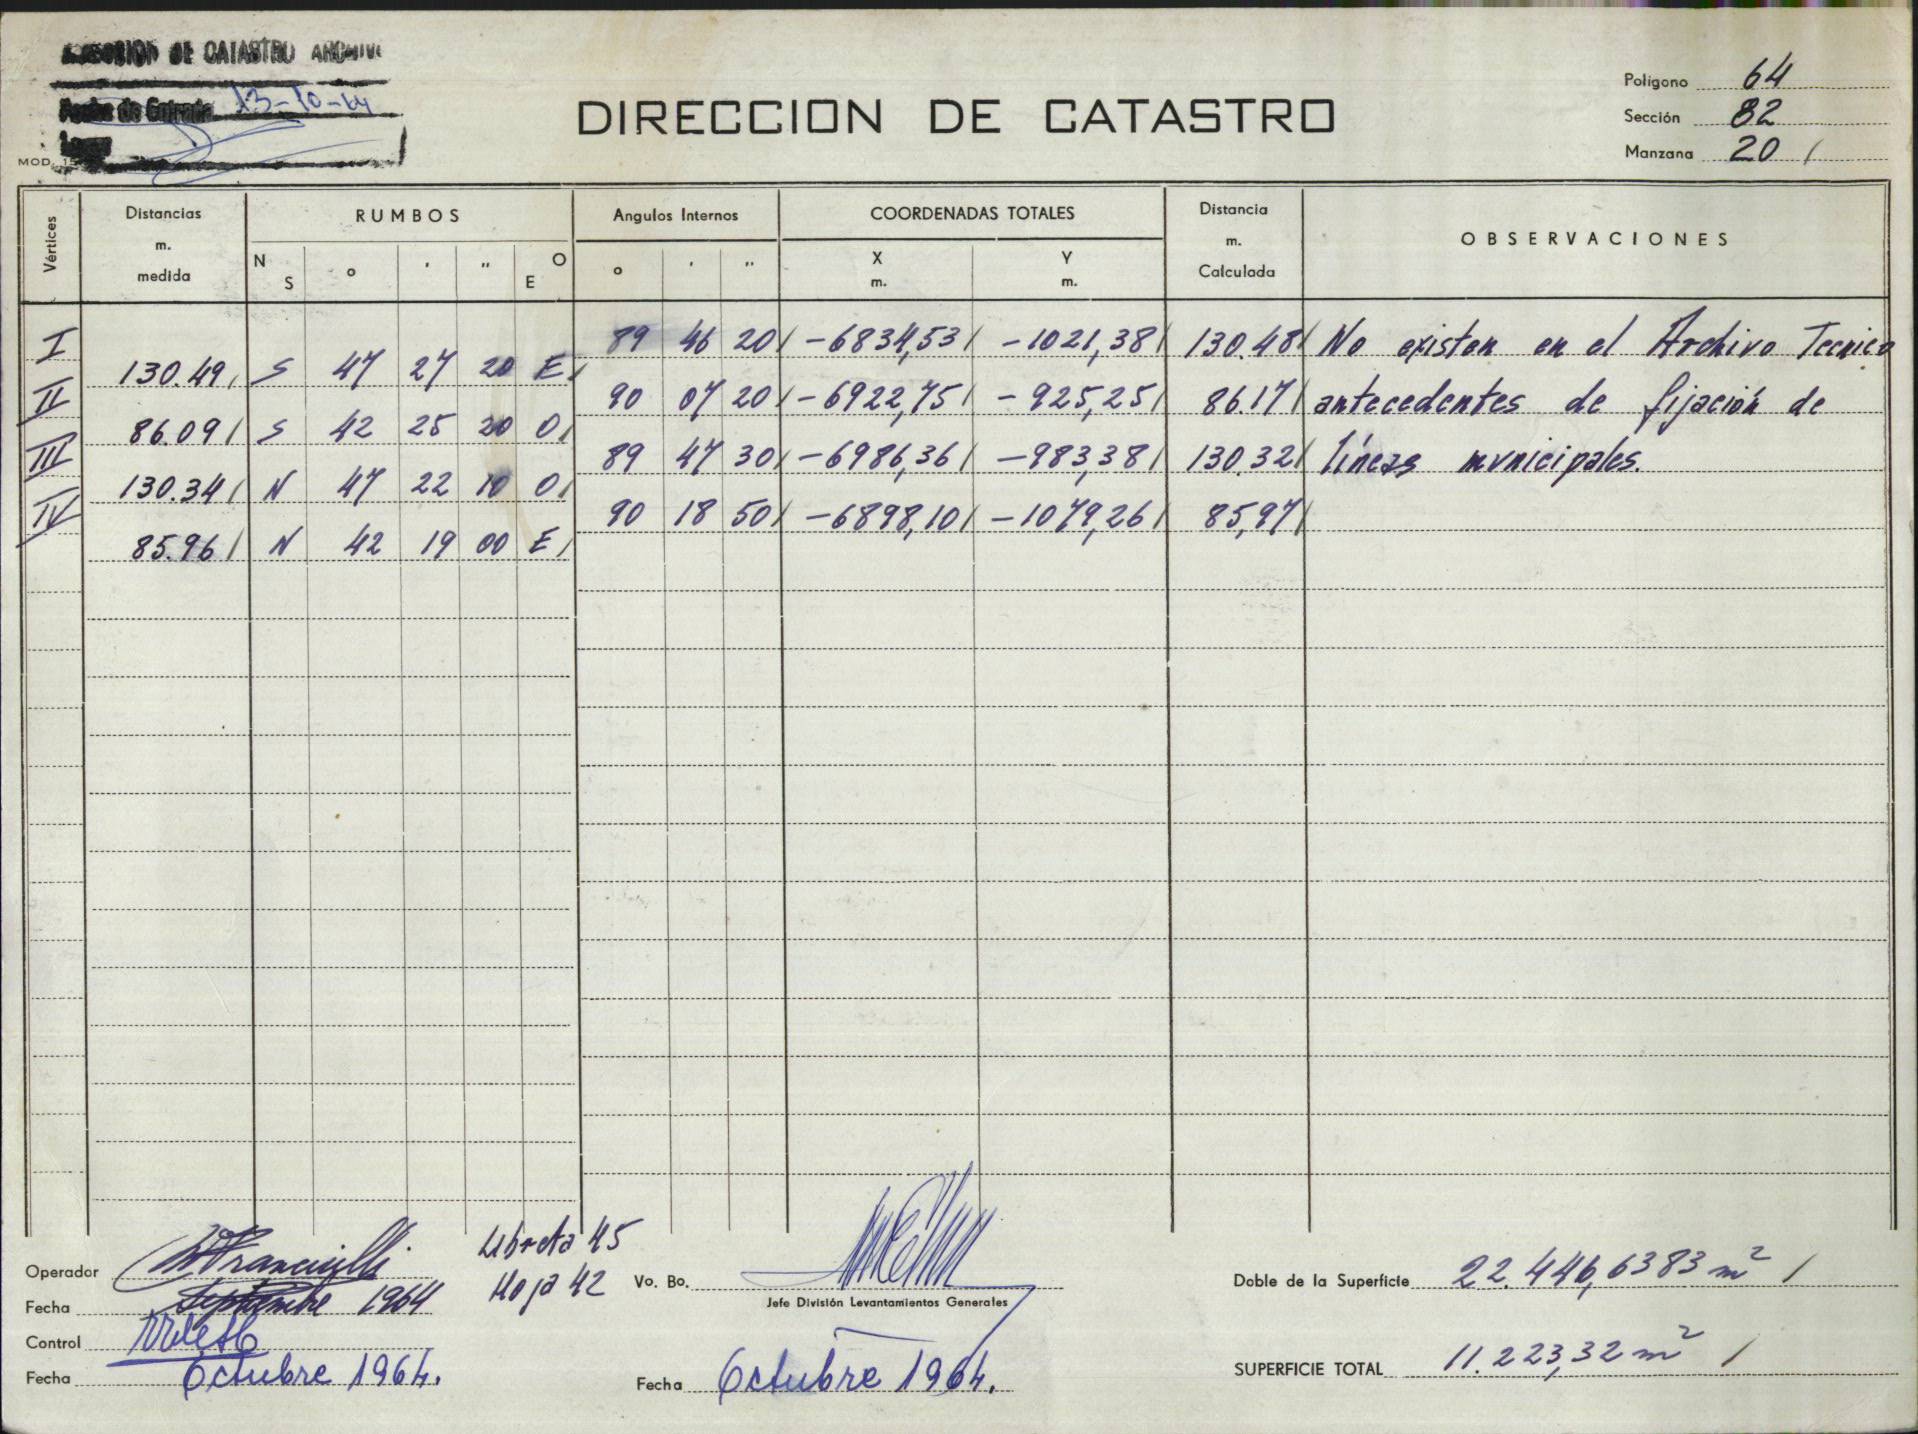 DIRECCION DE CATASTRO ARCHIVO
Fecha de Entrada 13-10-64
MOD. 15
DIRECCION DE CATASTRO
Polígono 64
Sección 82
Manzana 20 /
Vértices
Distancias m. medida
RUMBOS
N S ° ' '' O E
Angulos Internos
° ' ''
COORDENADAS TOTALES
X m. Y m.
Distancia m. Calculada
OBSERVACIONES
I 89 46 20 / -6834,53 / -1021,38 / 130.48 / No existen en el Archivo Tecnico
130.49 / S 47 27 20 E /
II 90 07 20 / -6922,75 / -925,25 / 86.17 / antecedentes de fijación de
86.09 / S 42 25 20 O /
III 89 47 30 / -6986,36 / -983,38 / 130.32 / líneas municipales.
130.34 / N 47 22 10 O /
IV 90 18 50 / -6898,10 / -1079,26 / 85,97 /
85.96 / N 42 19 00 E /
Operador
Libreta 45
Hoja 42
Fecha Septiembre 1964
Control
Fecha Octubre 1964.
Vo. Bo.
Jefe División Levantamientos Generales
Fecha Octubre 1964.
Doble de la Superficie 22.446,6383 m² /
SUPERFICIE TOTAL 11.223,32 m² /